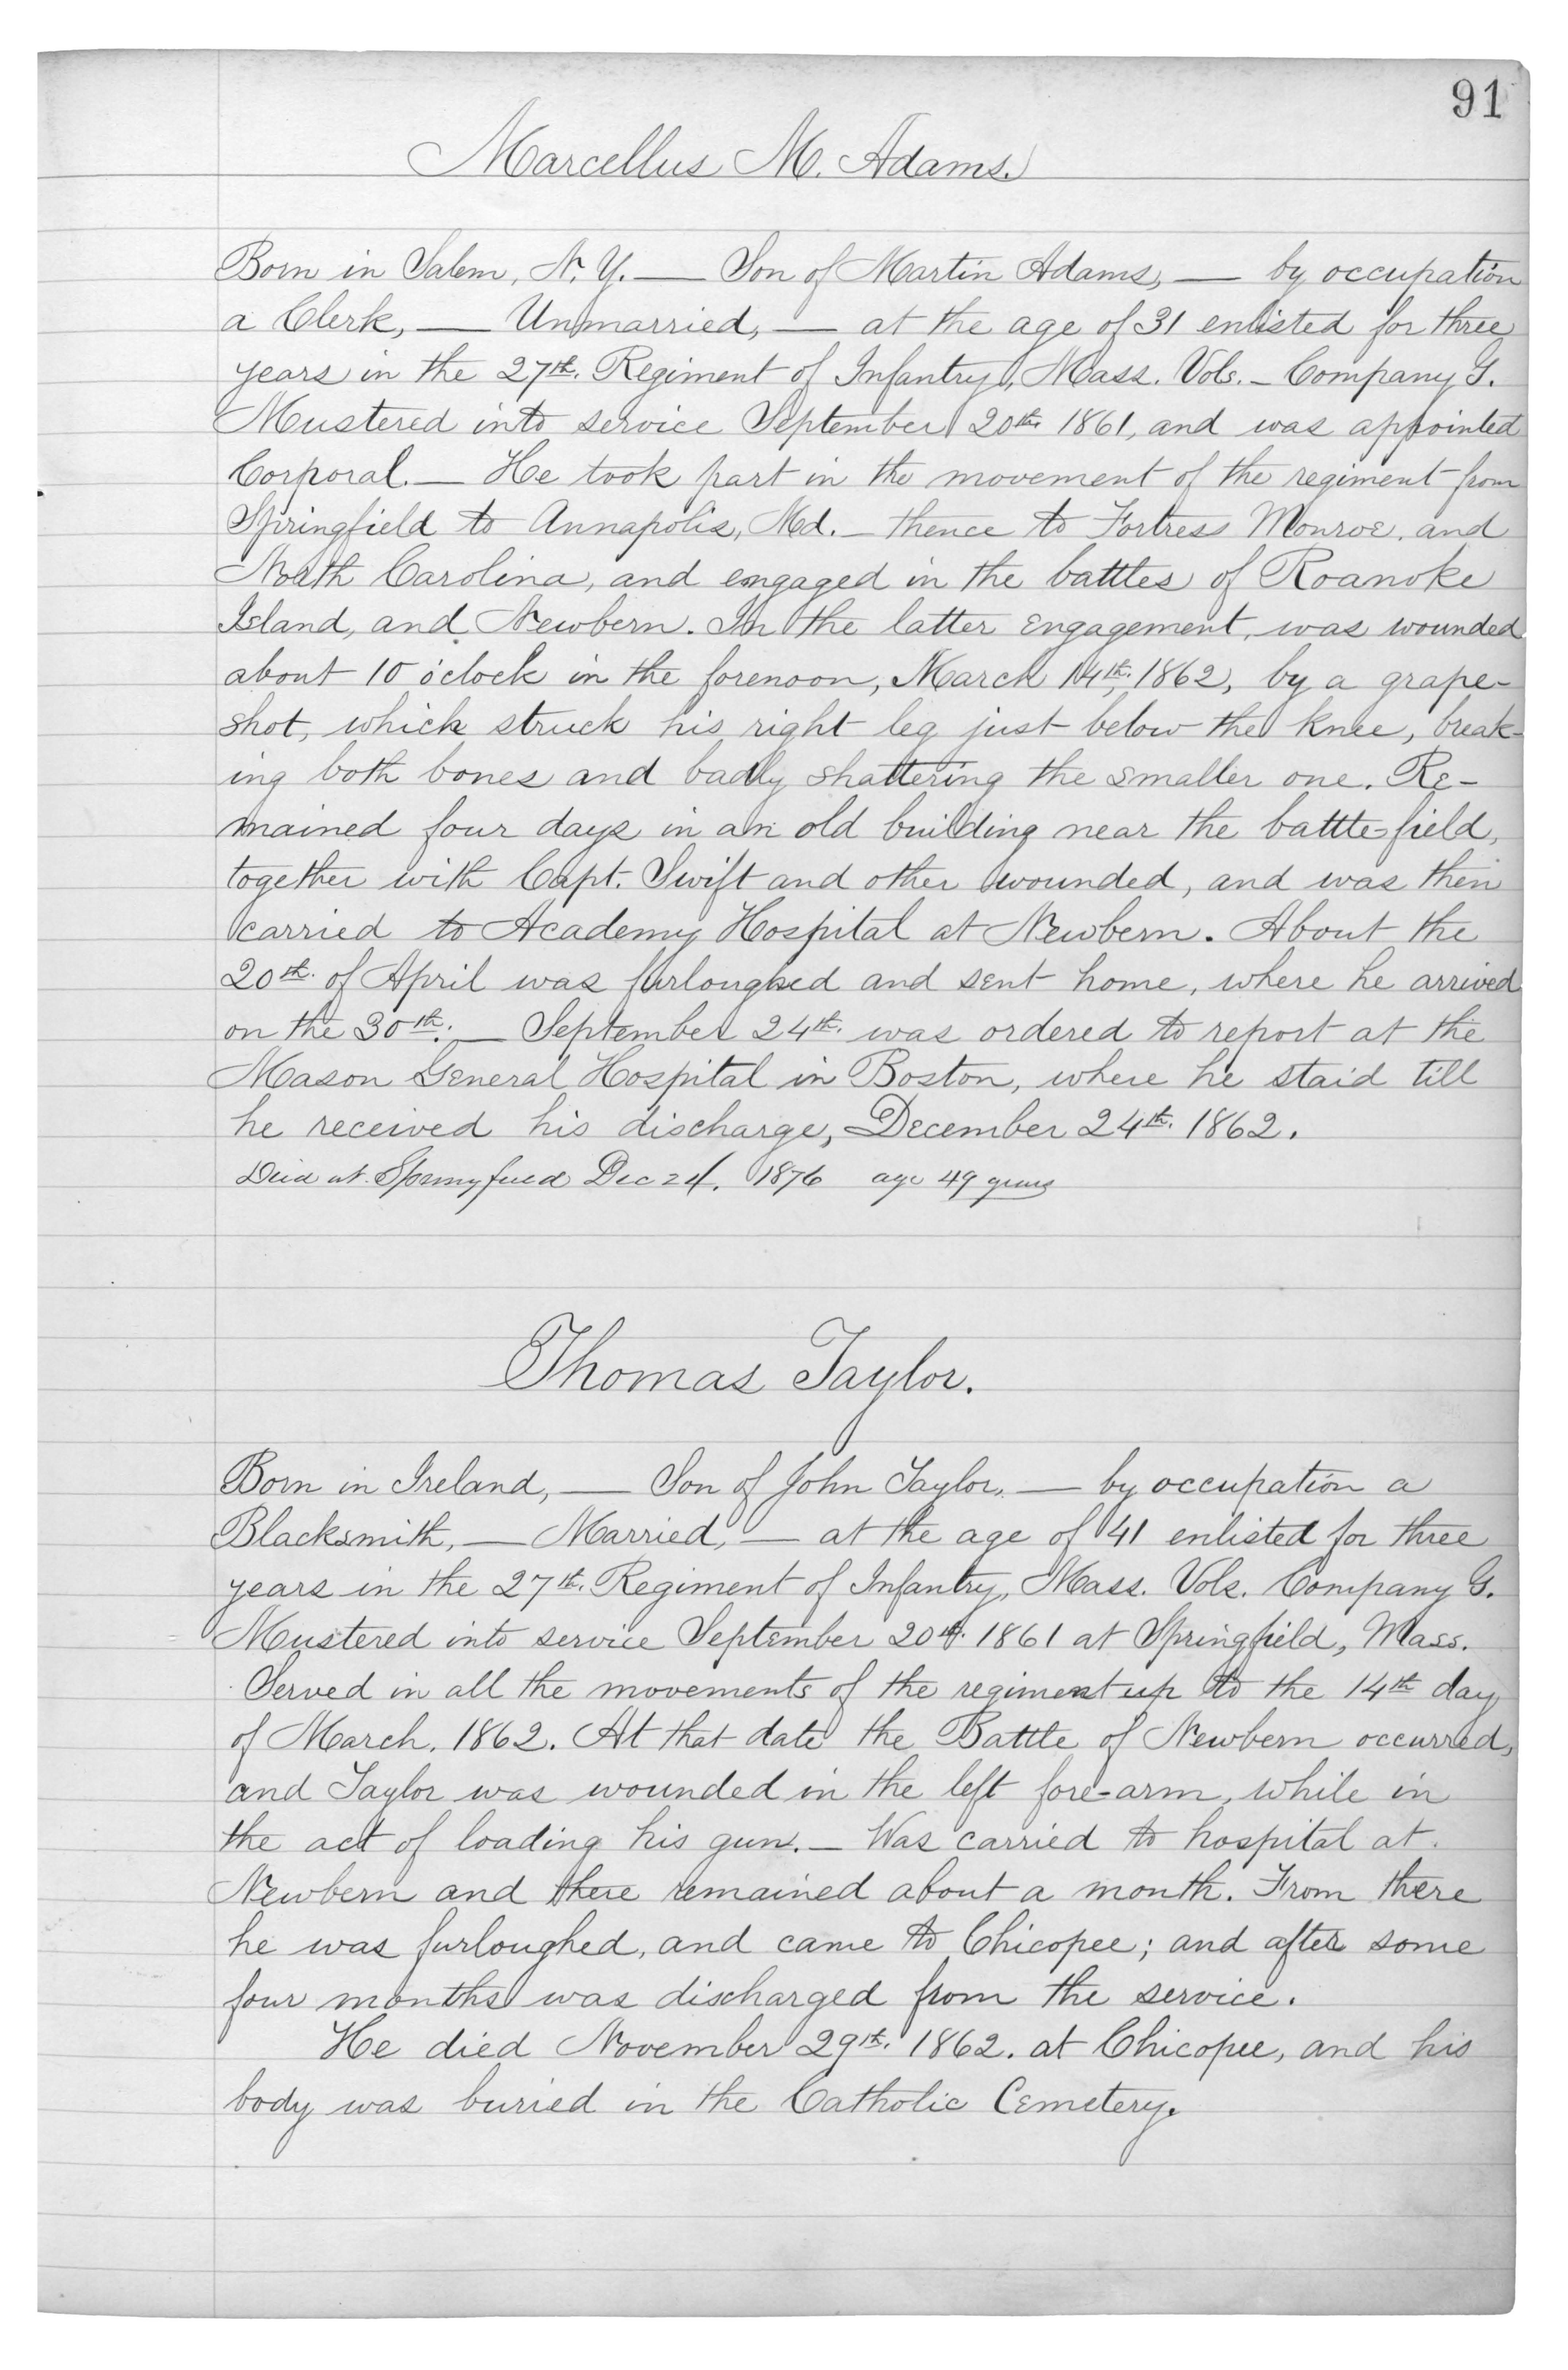 91
Marcellus M. Adams.
Born in Salem, N. Y. — Son of Martin Adams, — by occupation
a Clerk, — Unmarried, — at the age of 31 enlisted for three
years in the 27th. Regiment of Infantry, Mass. Vols. – Company G.
Mustered into service September 20th 1861, and was appointed
Corporal. — He took part in the movement of the regiment from
Springfield to Annapolis, Md. – thence to Fortress Monroe, and
North Carolina, and engaged in the battles of Roanoke
Island, and Newbern. In the latter engagement, was wounded
about 10 o'clock in the forenoon, March 14th, 1862, by a grape-
shot, which struck his right leg just below the knee, break-
ing both bones and badly shattering the smaller one. Re-
mained four days in an old building near the battle-field,
together with Capt. Swift and other wounded, and was then
carried to Academy Hospital at Newbern. About the
20th. of April was furloughed and sent home, where he arrived
on the 30th. — September 24th. was ordered to report at the
Mason General Hospital in Boston, where he staid till
he received his discharge, December 24th. 1862.
Died at Springfield Dec 24. 1876 age 49 years
Thomas Taylor.
Born in Ireland, — Son of John Taylor, — by occupation a
Blacksmith, — Married, — at the age of 41 enlisted for three
years in the 27th. Regiment of Infantry, Mass. Vols. Company G.
Mustered into service September 20th. 1861 at Springfield, Mass.
Served in all the movements of the regiment up to the 14th day
of March, 1862. At that date the Battle of Newbern occurred,
and Taylor was wounded in the left fore-arm, while in
the act of loading his gun. – Was carried to hospital at
Newbern and there remained about a month. From there
he was furloughed, and came to Chicopee; and after some
four months was discharged from the service.
He died November 29th. 1862. at Chicopee, and his
body was buried in the Catholic Cemetery.